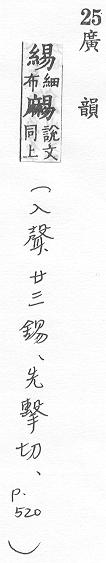 25 廣韻
緆細布說文同上
(入聲廿三錫、先擊切、p.520)